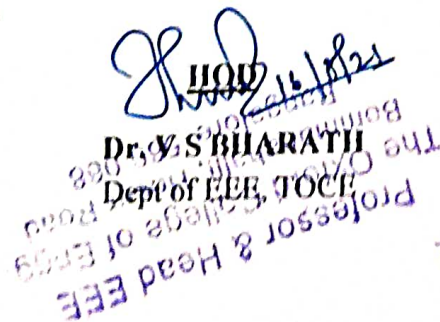 HOD
16/8/21
Dr. V S BHARATH
Dept of EEE, TOCE
Professor & Head EEE
The Oxford College of Engg
Bommanahalli, Hosur Road
Bangalore - 560 068